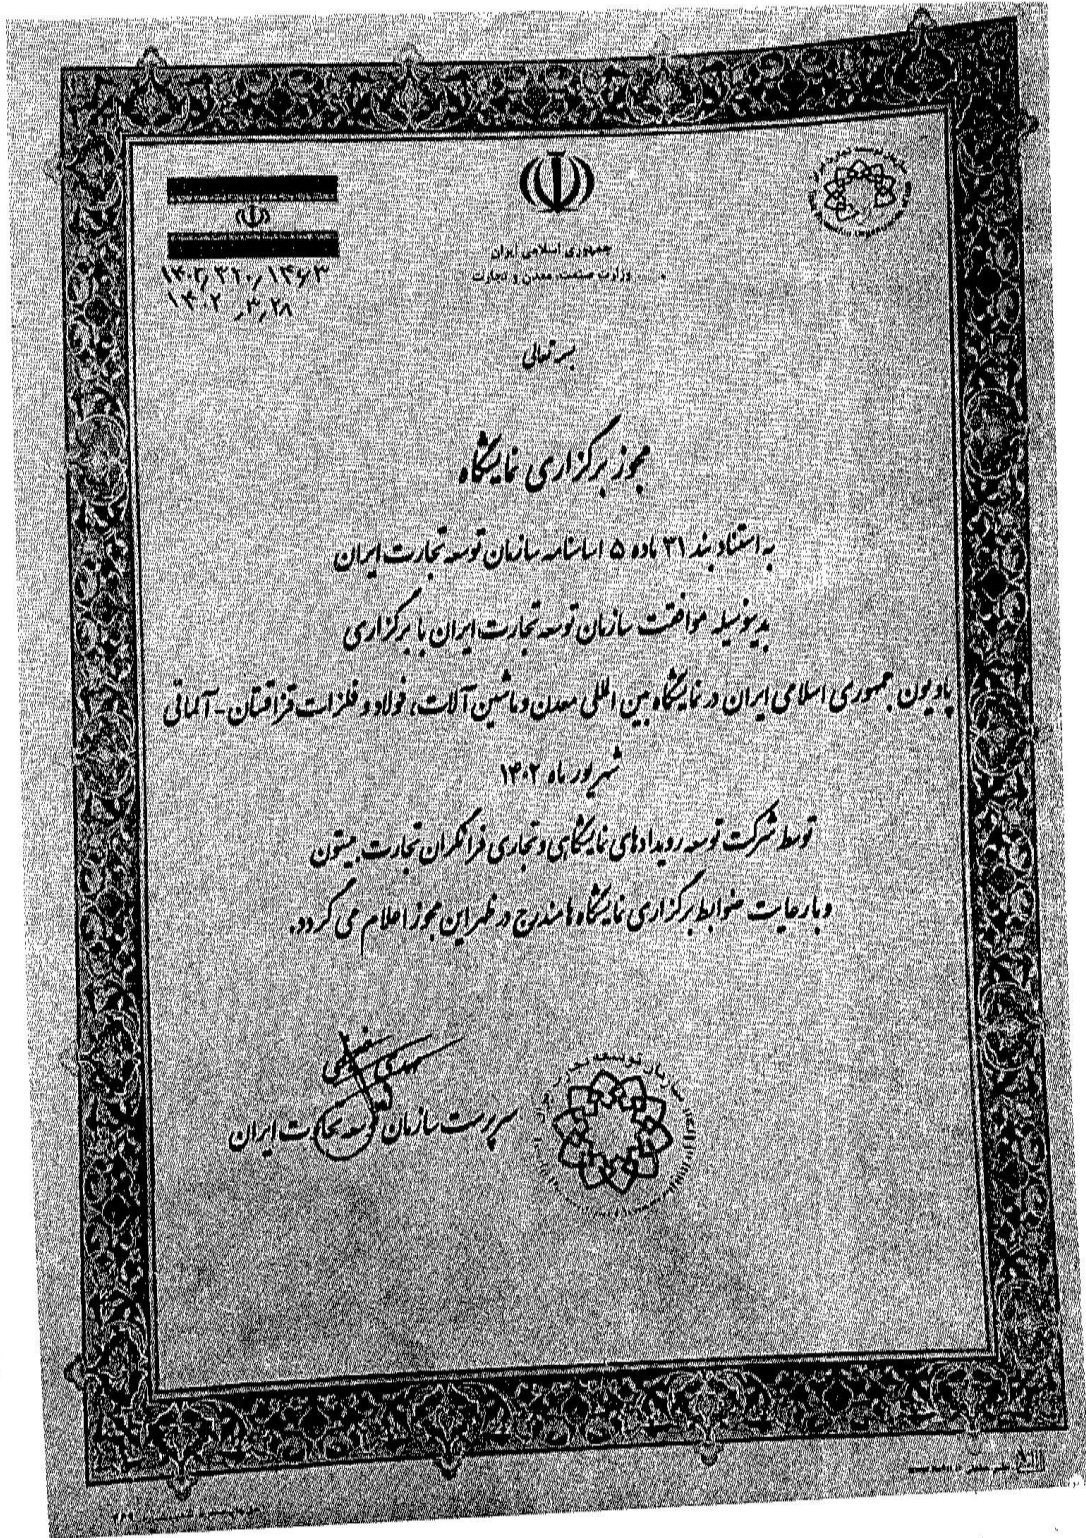 جمهوری اسلامی ایران
وزارت صنعت، معدن و تجارت
۱۴۰۲٫۲۱۰٫۱۴۶۳
۱۴۰۲٫۳٫۲۸
بسمه تعالی
مجوز برگزاری نمایشگاه
به استناد بند ۳۱ ماده ۵ اساسنامه سازمان توسعه تجارت ایران
بدینوسیله موافقت سازمان توسعه تجارت ایران با برگزاری
پاویون جمهوری اسلامی ایران در نمایشگاه بین المللی معدن و ماشین آلات، فولاد و فلزات قزاقستان-آلماتی
شهریور ماه ۱۴۰۲
توسط شرکت توسعه رویدادهای نمایشگاهی و تجاری فرانگران تجارت بیستون
و با رعایت ضوابط برگزاری نمایشگاه ها مندرج در ظهر این مجوز اعلام می گردد.
سرپرست سازمان توسعه تجارت ایران